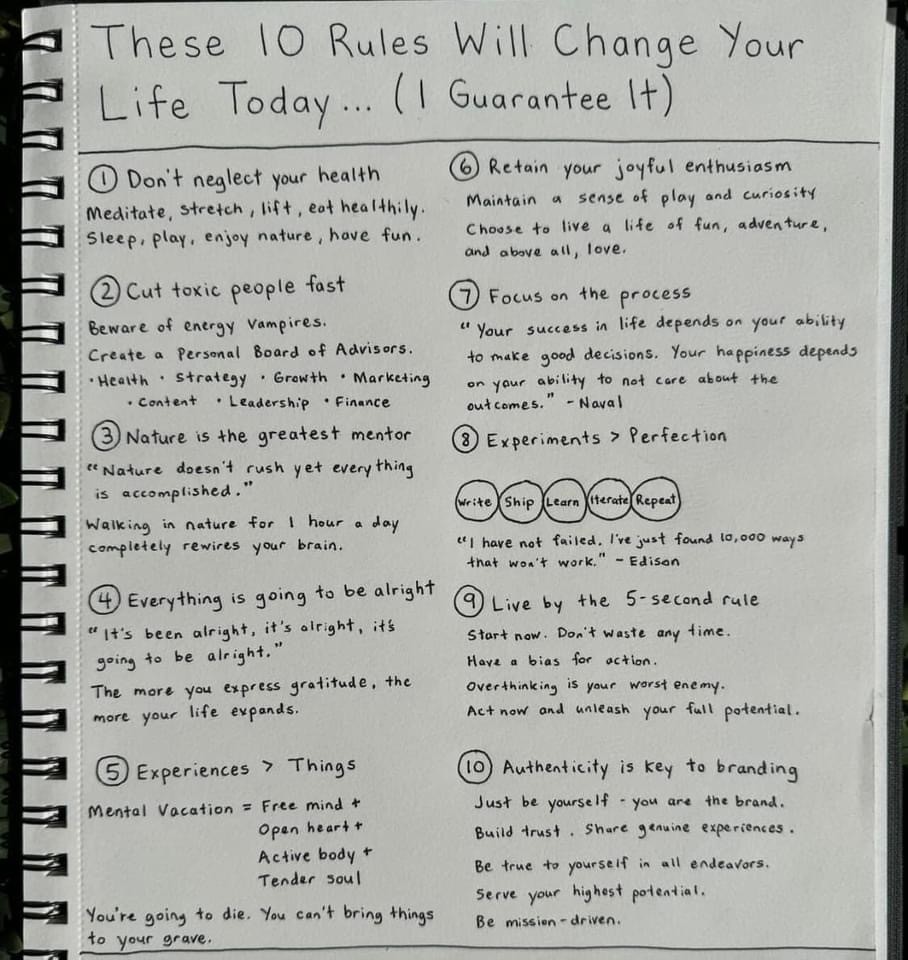 These 10 Rules Will Change Your
Life Today... (I Guarantee It)
① Don't neglect your health
Meditate, stretch, lift, eat healthily.
Sleep, play, enjoy nature, have fun.
② Cut toxic people fast
Beware of energy vampires.
Create a Personal Board of Advisors.
• Health • Strategy • Growth • Marketing
• Content • Leadership • Finance
③ Nature is the greatest mentor
"Nature doesn't rush yet everything
is accomplished."
Walking in nature for 1 hour a day
completely rewires your brain.
④ Everything is going to be alright
"It's been alright, it's alright, it's
going to be alright."
The more you express gratitude, the
more your life expands.
⑤ Experiences > Things
Mental Vacation = Free mind +
Open heart +
Active body +
Tender soul
You're going to die. You can't bring things
to your grave.
⑥ Retain your joyful enthusiasm
Maintain a sense of play and curiosity
Choose to live a life of fun, adventure,
and above all, love.
⑦ Focus on the process
"Your success in life depends on your ability
to make good decisions. Your happiness depends
on your ability to not care about the
outcomes." - Naval
⑧ Experiments > Perfection
Write Ship Learn Iterate Repeat
"I have not failed. I've just found 10,000 ways
that won't work." - Edison
⑨ Live by the 5-second rule
Start now. Don't waste any time.
Have a bias for action.
Overthinking is your worst enemy.
Act now and unleash your full potential.
⑩ Authenticity is key to branding
Just be yourself - you are the brand.
Build trust. Share genuine experiences.
Be true to yourself in all endeavors.
Serve your highest potential.
Be mission-driven.